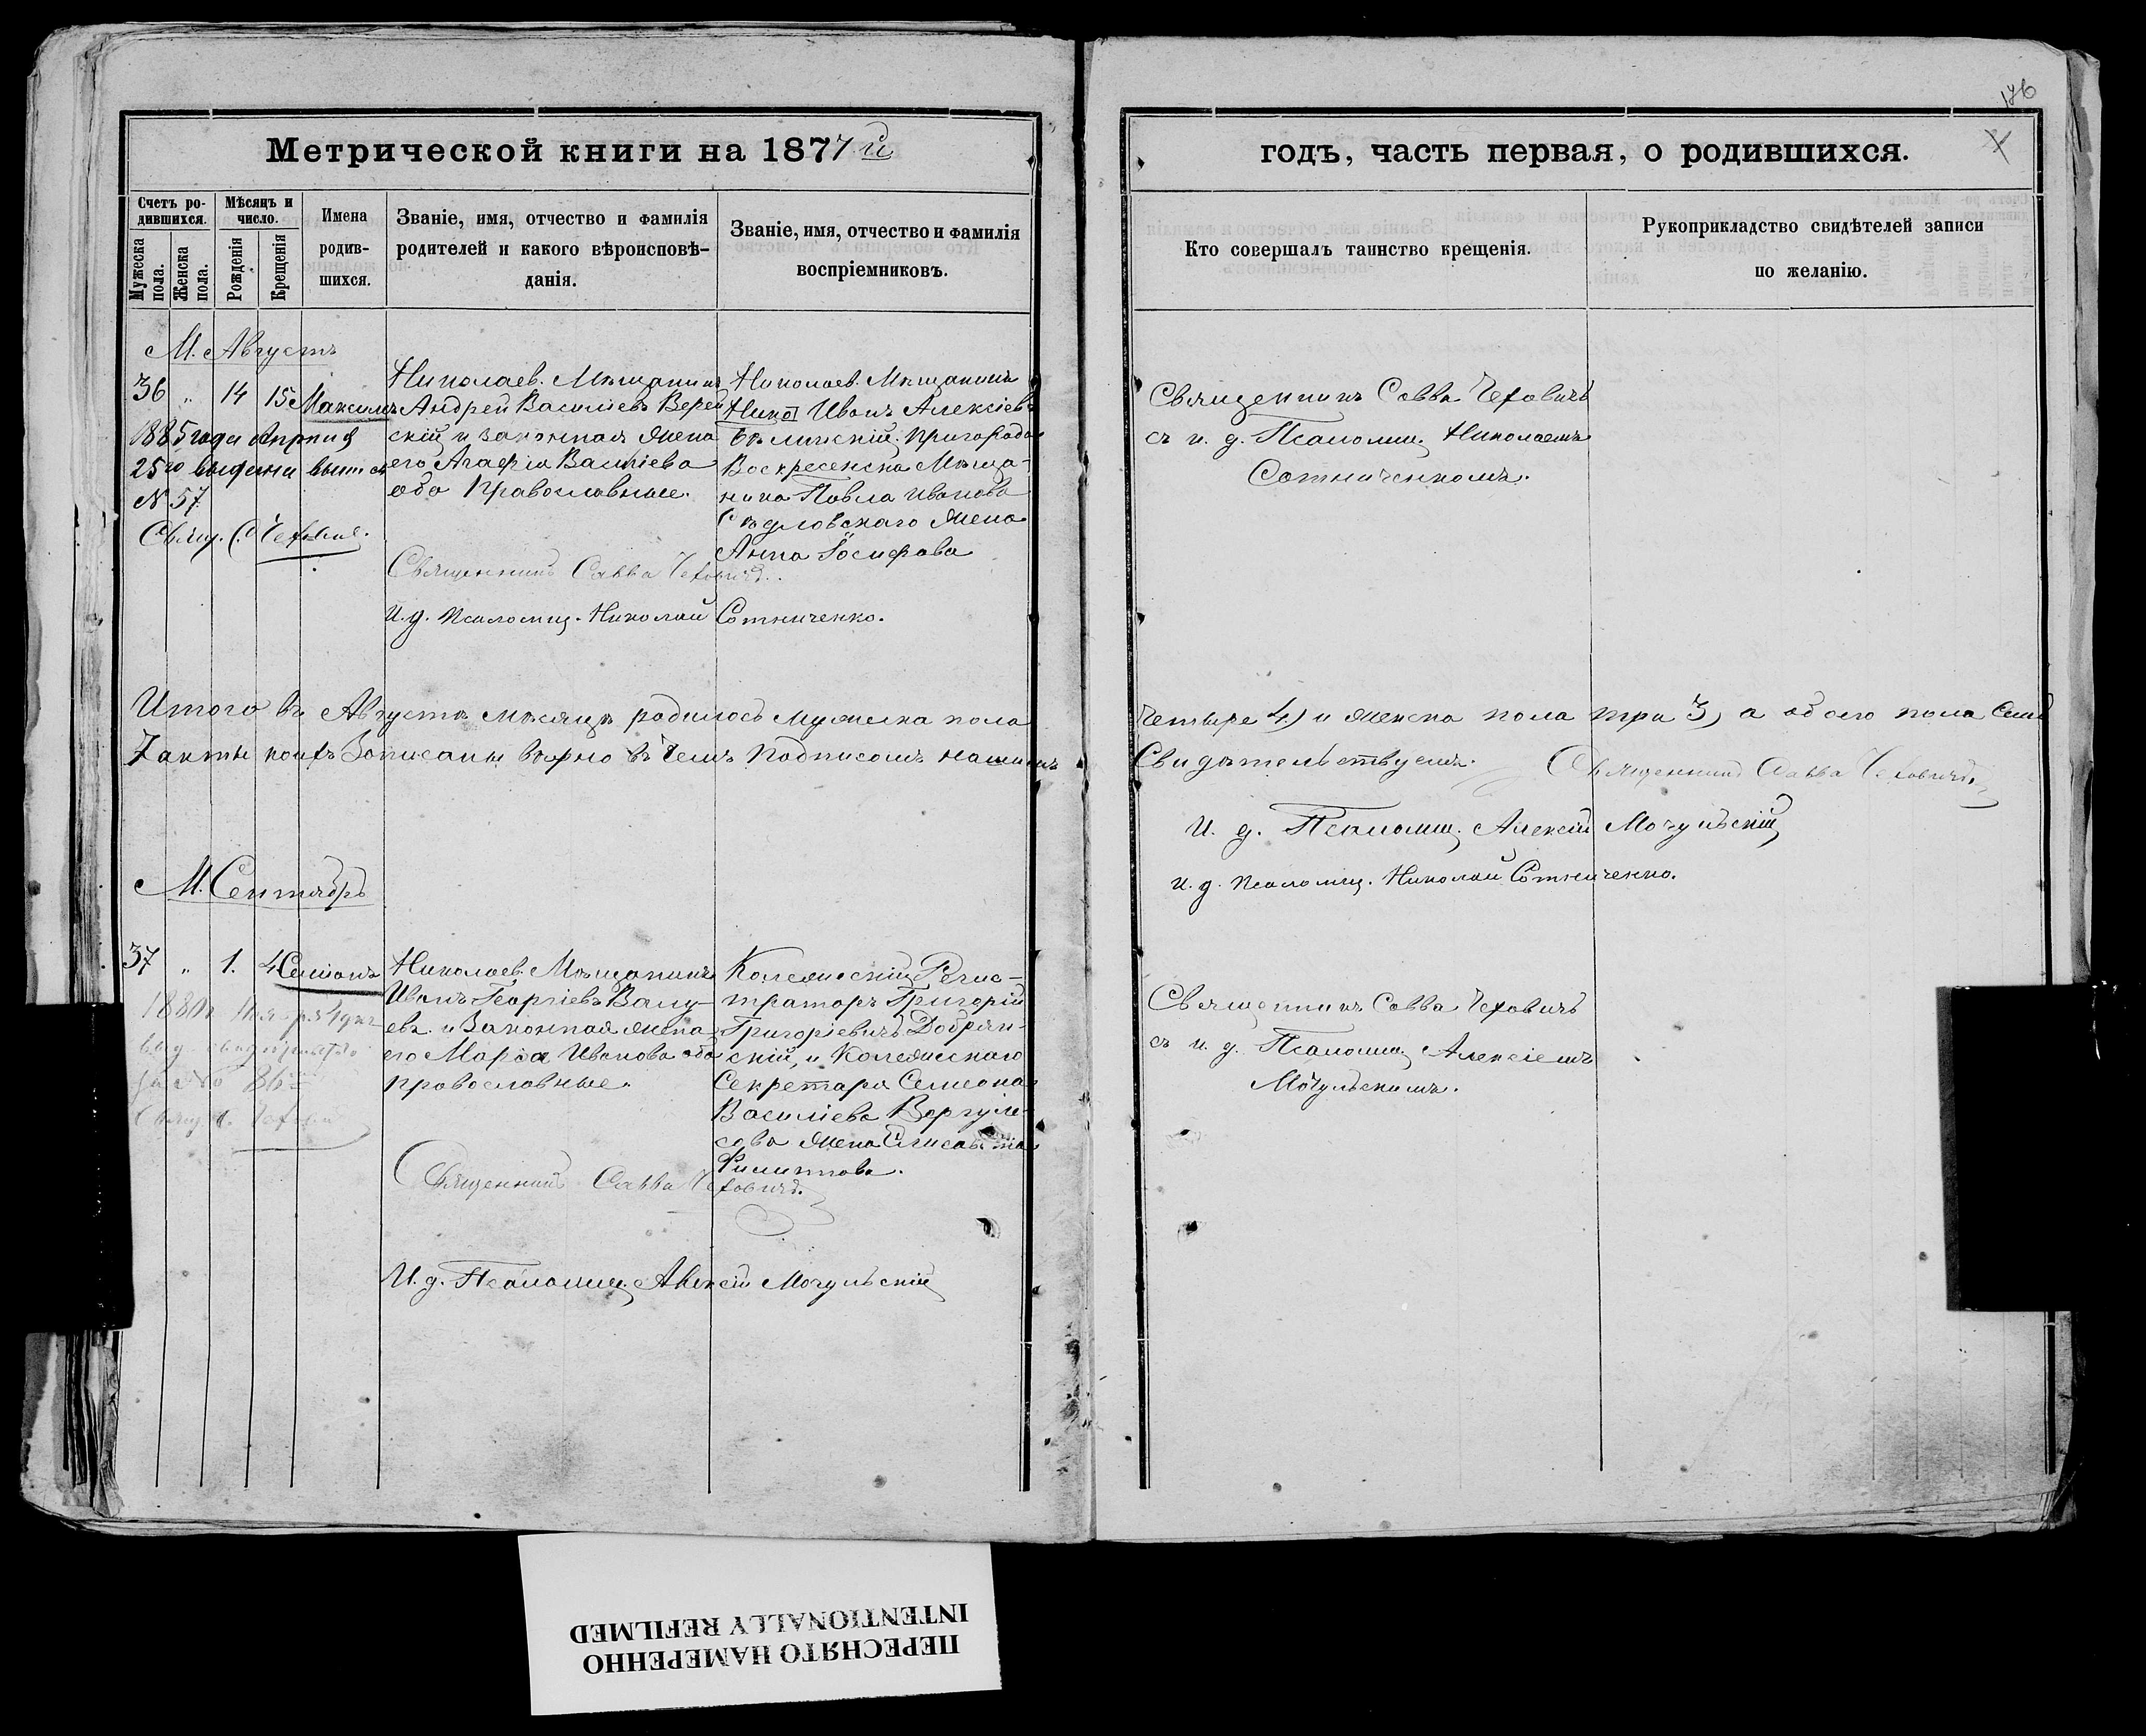 176
Метрической книги на 1877 й
годъ, часть первая, о родившихся.
Счетъ ро-
дившихся.
Мужеска
пола.
Женска
пола.
Мѣсяцъ и
число.
Рожденія
Крещенія
Имена
родив-
шихся.
Званіе, имя, отчество и фамилія
родителей и какого вѣроисповѣ-
данія.
Званіе, имя, отчество и фамилія
воспріемниковъ.
Кто совершалъ таинство крещенія.
Рукоприкладство свидѣтелей записи
по желанію.
М. Августъ
36 " 14 15 Максимъ
1885 года Апрѣля
25го выдана
N 57
Свящ. С. Чеховичъ.
Николаев. Мѣщанинъ
Андрей Василіевъ
скій и законная жена
его Агафія
оба Православные.
Николаев. Мѣщанинъ
Иванъ Алексіевъ
пригорода
Воскресенска Мѣща-
нина Павла Иванова
жена
Анна Іосифова
Священникъ Савва Чеховичъ
съ и. д. Псаломщ. Николаемъ
Сотниченкомъ.
Священникъ Савва Чеховичъ.
И. д. псаломщ. Николай Сотниченко.
Итого въ Августѣ мѣсяцѣ родилось мужеска пола
четыре 4) и женска пола три 3) а обоего пола семь
7 акты коихъ записаны вѣрно въ чемъ подписомъ нашимъ
Свидѣтельствуемъ. Священникъ Савва Чеховичъ
И. д. Псаломщ. Алексій Мочульскій
И. д. псаломщ. Николай Сотниченко.
М. Сентябрь
37 " 1. 4 Симеонъ
Свящ. С. Чеховичъ
Николаев. Мѣщанинъ
Иванъ Георгіевъ
евъ и Законная жена
его Марія Иванова оба
православные.
Колежскій Регис-
траторъ Григорій
Григоріевичъ Добрян-
скій, и Колежскаго
Секретаря Симеона
Василіева
жена Елисавета
Филиппова.
Священникъ Савва Чеховичъ
съ и. д. Псаломщ. Алексіемъ
Мочульскимъ.
Священникъ Савва Чеховичъ.
И. д. Псаломщ. Алексій Мочульскій
ПЕРЕСНЯТО НАМЕРЕННО
INTENTIONALLY REFILMED